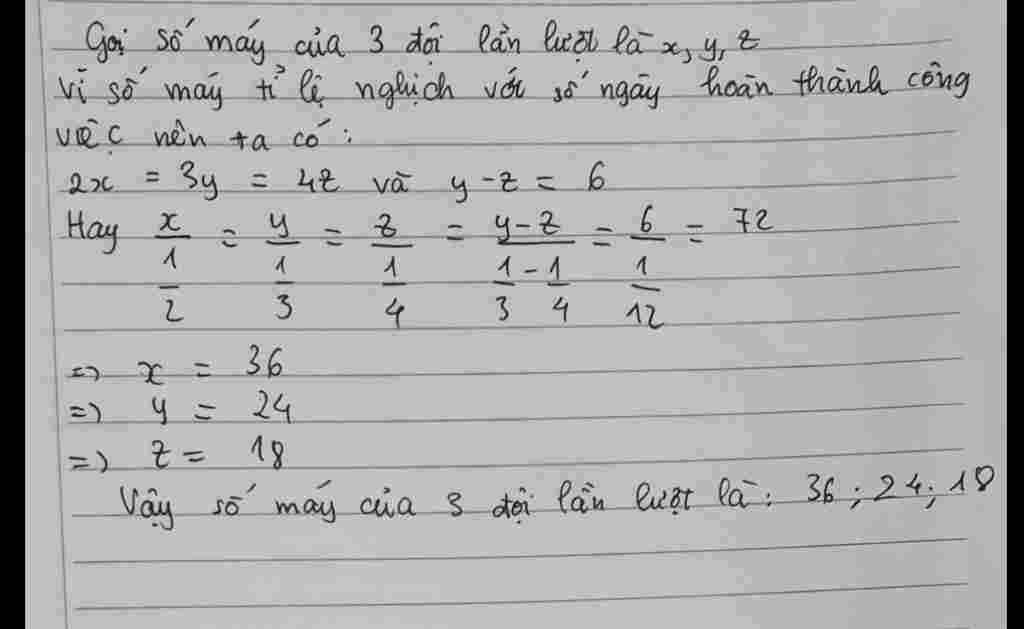 Gọi số máy của 3 đội lần lượt là x, y, z
Vì số máy tỉ lệ nghịch với số ngày hoàn thành công
việc nên ta có:
2x = 3y = 4z và y - z = 6
Hay x/(1/2) = y/(1/3) = z/(1/4) = (y-z)/(1/3 - 1/4) = 6/(1/12) = 72
=> x = 36
=> y = 24
=> z = 18
Vậy số máy của 3 đội lần lượt là: 36; 24; 18